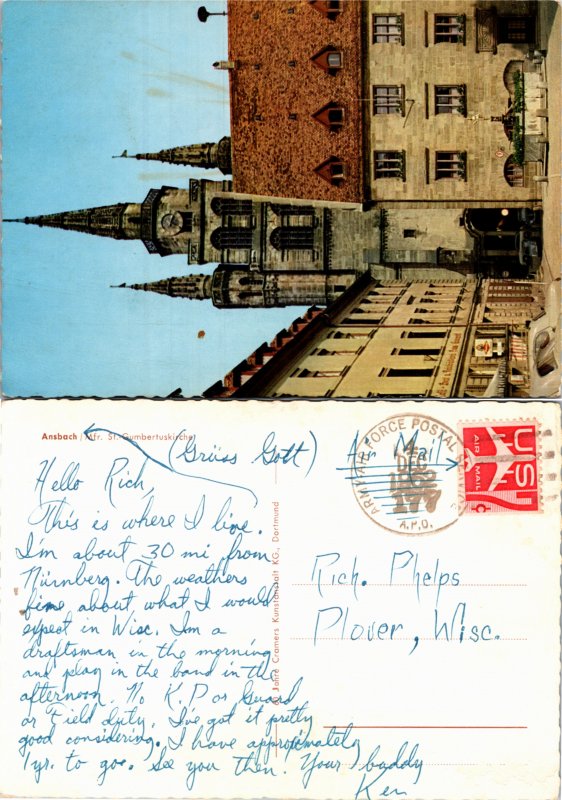 Ansbach / Mfr. St. Gumbertuskirche
(Grüss Gott)
Air Mail
ARMY-AIR FORCE POSTAL
4
DEC
1962
177
A.P.O.
US
AIR MAIL
7¢
Hello Rich,
This is where I live.
I'm about 30 mi from
Nürnberg. The weathers
fine about what I would
expect in Wisc. I'm a
draftsman in the morning
and play in the band in the
afternoon. No K.P or Guard
or Field duty. I've got it pretty
good considering. I have approximately
1yr. to go. See you then. Your buddy
Ken
Jahre Cramers Kunstanstalt KG., Dortmund
Rich. Phelps
Plover, Wisc.